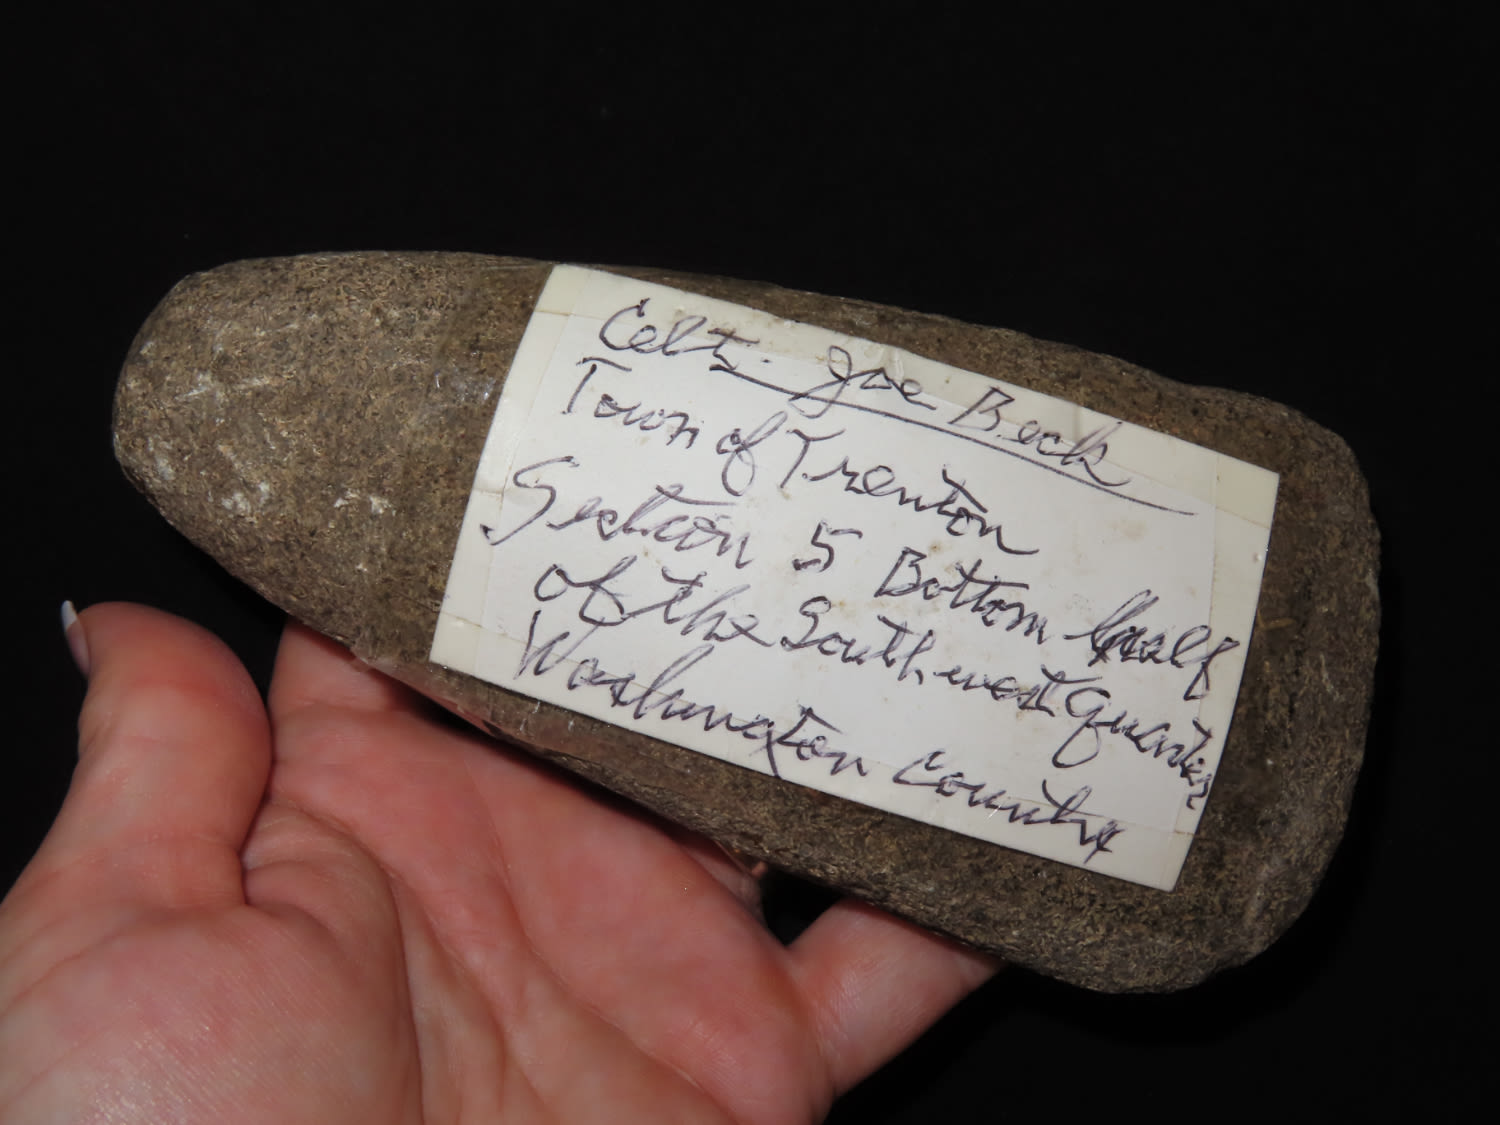 Celt. Joe Beck
Town of Trenton
Section 5 Bottom half
of the Southwest Quarter
Washington County